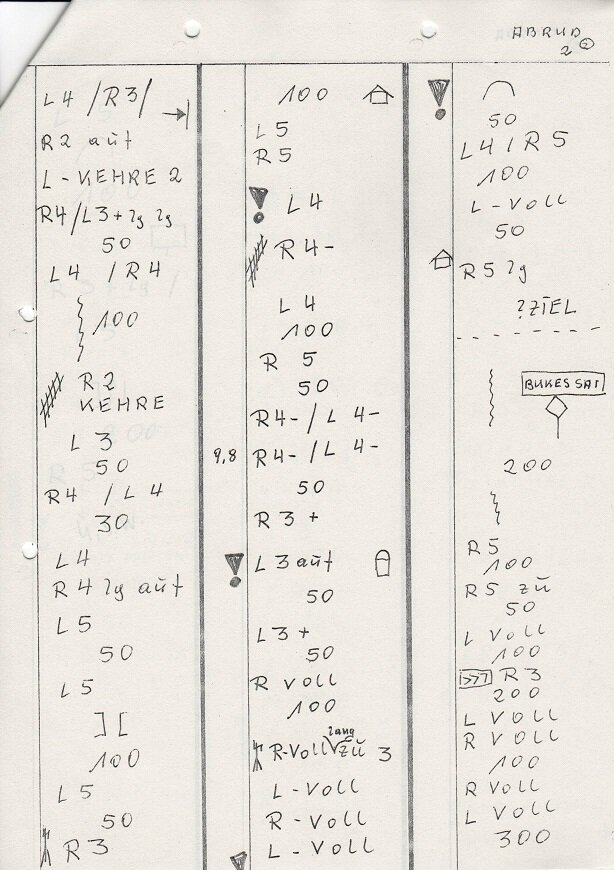 ABRUD
2 ②
L4 /R3/
R2 auf
L-KEHRE 2
R4/L3+ lg lg
50
L4 /R4
100
R2
KEHRE
L3
50
R4 /L4
30
L4
R4 lg auf
L5
50
L5
][
100
L5
50
R3
100
L5
R5
! L4
R4-
L4
100
R 5
50
R4- / L 4-
9,8 R4- / L 4-
50
R3 +
! L3 auf
50
L3 +
50
R VOLL
100
R-VOLL lang zu 3
L-VOLL
R-VOLL
L-VOLL
!
50
L4 / R 5
100
L-VOLL
50
R5 lg
?ZIEL
BUKESSAT
200
R5
100
R5 zu
50
L VOLL
100
R3
200
L VOLL
R VOLL
100
R VOLL
L VOLL
300